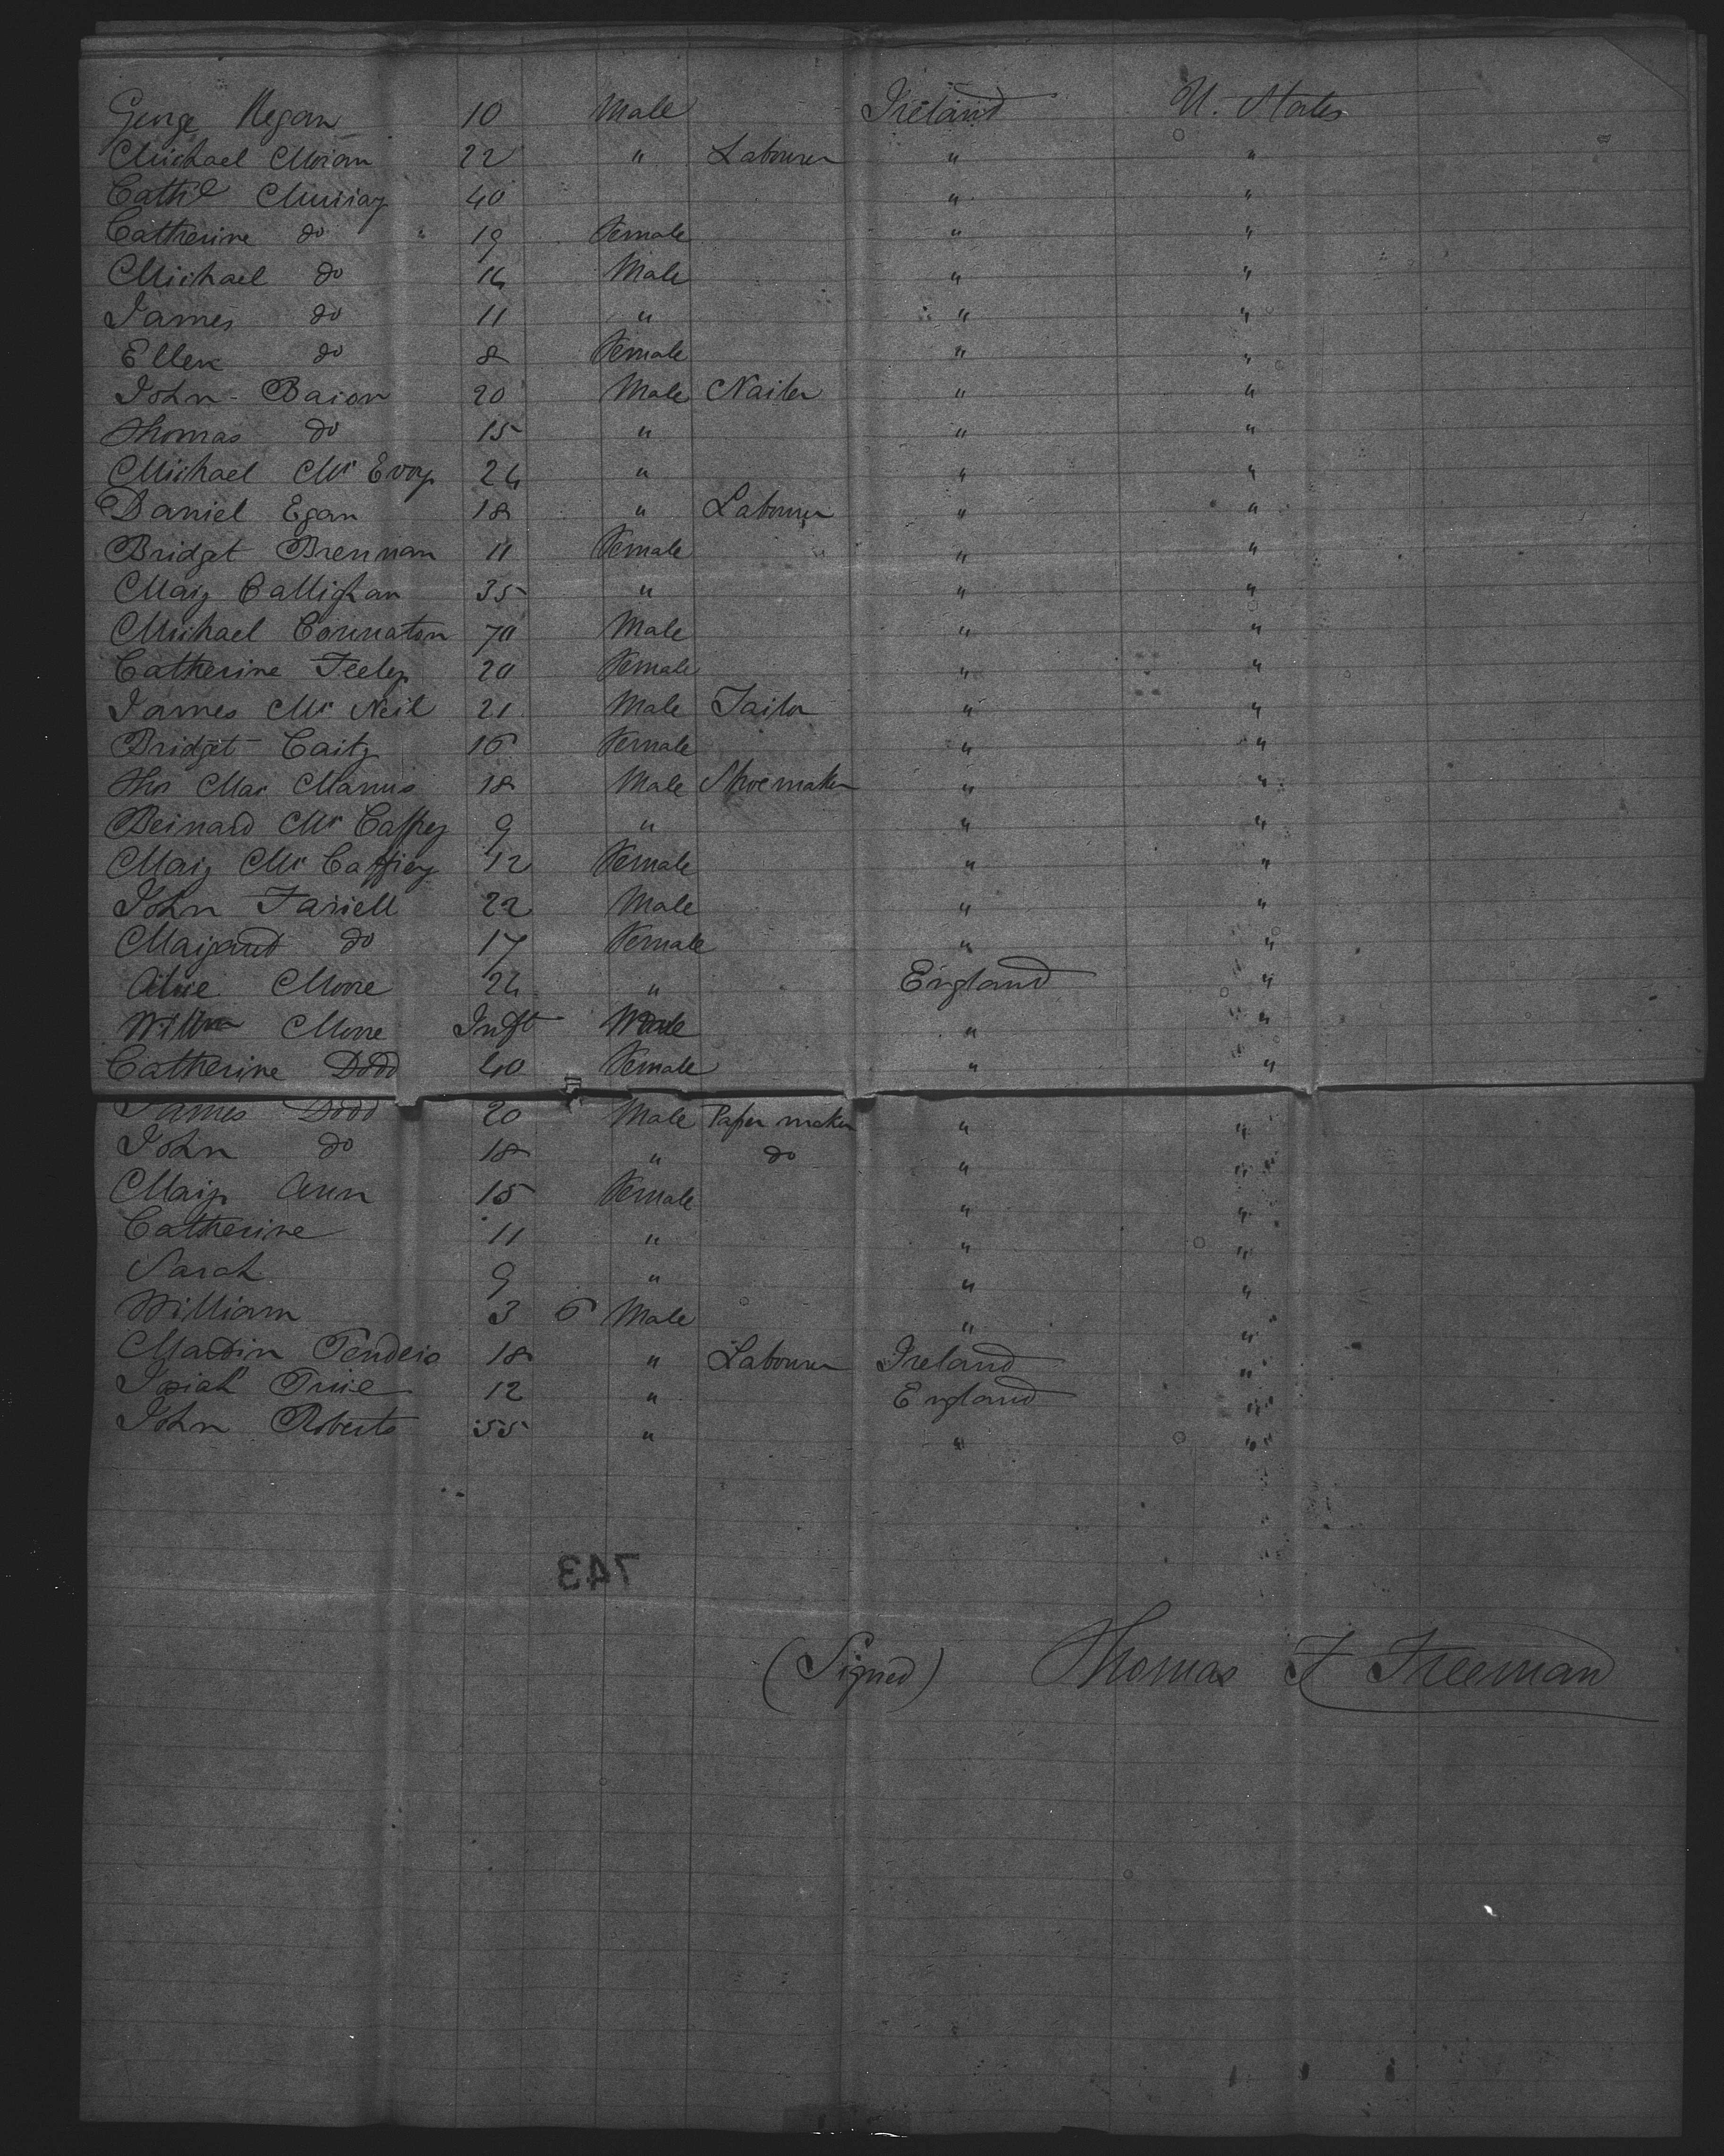 George Regan 10 Male Ireland U. States
Michael Moran 22 " Labourer " "
Cathe Murray 40 " "
Catherine do 19 Female " "
Michael do 14 Male " "
James do 11 " " "
Ellen do 8 Female " "
John Bacon 20 Male Nailer " "
Thomas do 15 " " "
Michael Mc Evoy 24 " " "
Daniel Egan 18 " Labourer " "
Bridget Brennan 11 Female " "
Mary Callighan 35 " " "
Michael 70 Male " "
Catherine Feeley 20 Female " "
James Mc Neil 21 Male Tailor " "
Bridget 16 Female " "
Thos Mac Manus 18 Male Shoemaker " "
Bernard Mc Caffrey 9 " " "
Mary Mc Caffrey 12 Female " "
John Farrell 22 Male " "
Margaret do 17 Female " "
Alice Moore 24 " England "
Willm Moore Inft Male " "
Catherine Dodd 40 Female " "
James Dodd 20 Male Paper maker " "
John do 18 " do " "
Mary Ann 15 Female " "
Catherine 11 " " "
Sarah 9 " " "
William 3 6 Male " "
Martin 18 " Labourer Ireland "
12 " England "
John Roberts 55 " " "
743
(Signed) Thomas F Freeman